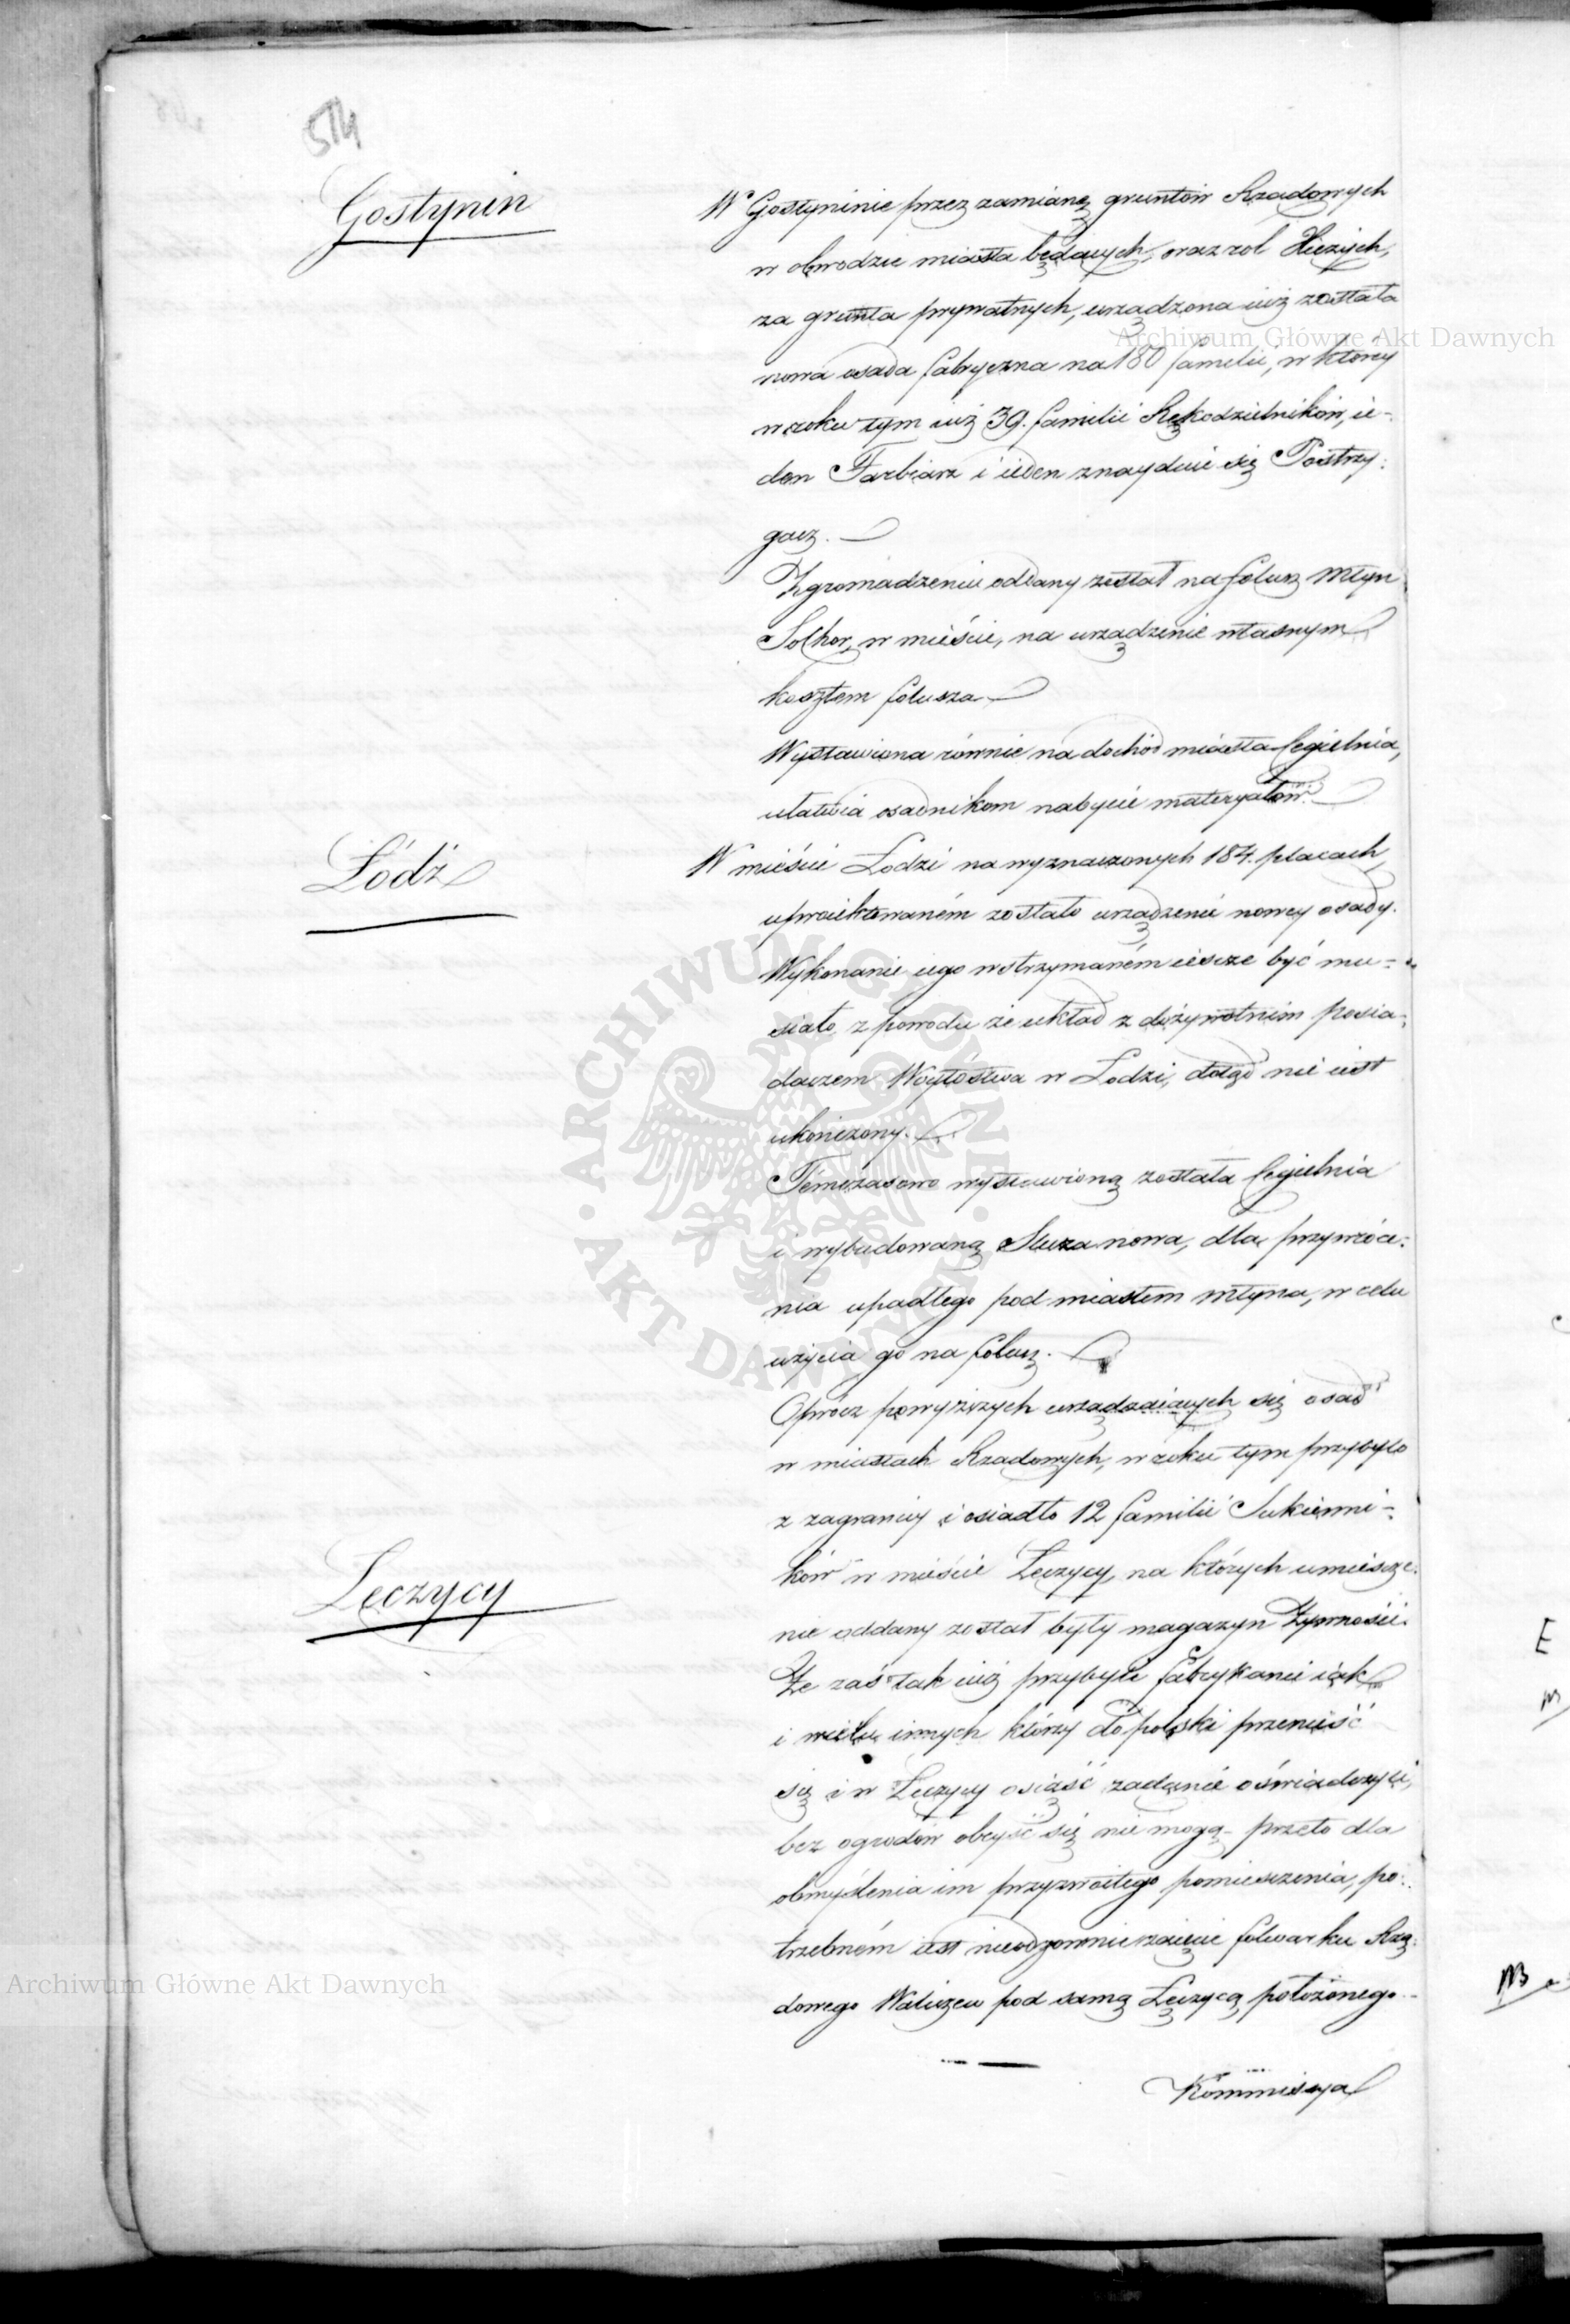 514
Gostynin
W Gostyninie przez zamianę gruntów Rządowych
w obwodzie miasta będących, oraz rol
za grunta prywatnych, urządzona iuż została
nowa osada fabryczna na 180 familii, w którey
w roku tym iuż 39. familii Rękodzielników, ie-
den Farbiarz i ieden znayduie się Postrzy:
gacz.
Zgromadzeniu oddany został na folusz Młyn
w mieście, na urządzenie własnym
kosztem folusza
Wystawiona równie na dochód miasta Cegielnia,
ułatwia osadnikom nabycie materyałów.
Łódź
W mieście Łodzi na wyznaczonych 184. placach,
uproiektowaném zostało urządzenie nowey osady.
Wykonanie iego wstrzymaném ieszcze być mu-
siało, z powodu że układ z dożywotnim posia-
daczem Woytóstwa w Łodzi, dotąd nie iest
ukończony.
Témczasowo wystawioną została Cegielnia
i wybudowaną Śluza nowa, dla przywróce:
nia upadłego pod miastem młyna, w celu
użycia go na folusz.
Oprócz powyższych urządzaiących się osad
w miastach Rządowych, w roku tym przybyło
z zagranicy i osiadło 12 familii Sukienni-
Łęczycy
ków w mieście Łęczycy, na których umieszcze:
nie oddany został były magazyn Żywności.
Że zaś tak iuż przybyli fabrykanci iak
i wielu innych którzy do polski przenieść
się i w Łęczycy osiąść żądanie oświadczyli,
bez ogrodów obeyść się nie mogą - przeto dla
obmyślenia im przyzwoitego pomieszczenia, po:
trzebném iest nieodzownie zaięcie folwarku Rzą:
dowego pod samą Łęczycą położonego.
Kommissya
ARCHIWUM GŁÓWNE
AKT DAWNYCH
Archiwum Główne Akt Dawnych
Archiwum Główne Akt Dawnych